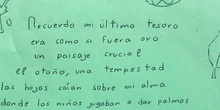 Recuerdo mi último tesoro
era como si fuera oro
un paisaje crucial
el otoño, una tempestad
las hojas caían sobre mi alma
donde los niños jugaban a dar palmas